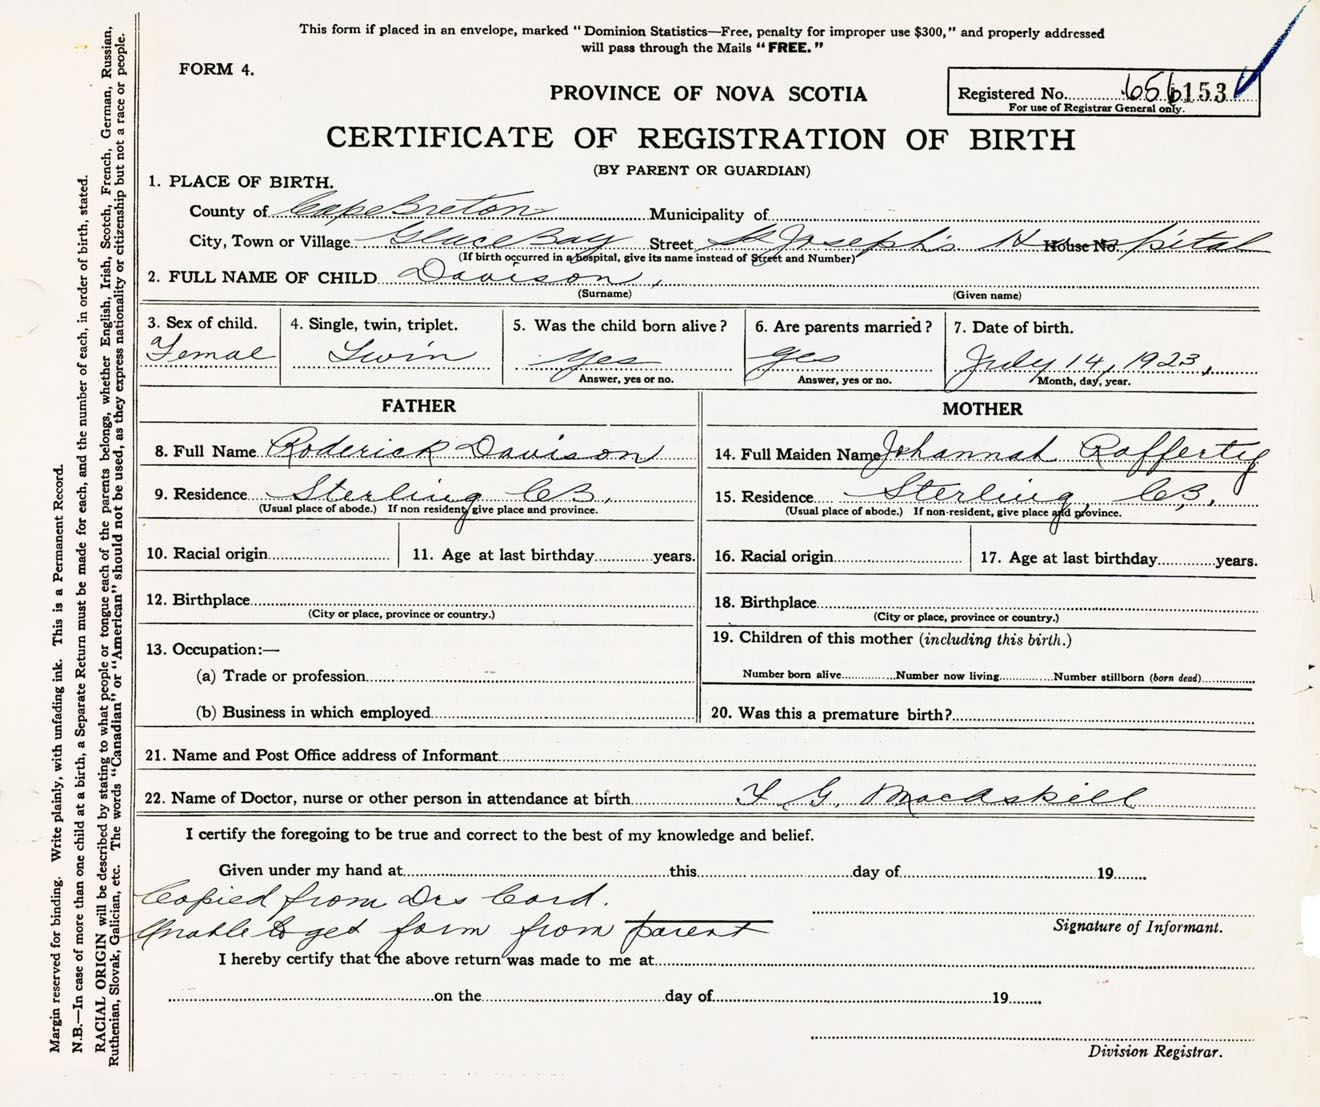 This form if placed in an envelope, marked "Dominion Statistics—Free, penalty for improper use $300," and properly addressed
will pass through the Mails "FREE."
FORM 4.
PROVINCE OF NOVA SCOTIA
Registered No. 656153
For use of Registrar General only.
CERTIFICATE OF REGISTRATION OF BIRTH
(BY PARENT OR GUARDIAN)
1. PLACE OF BIRTH.
County of Cape Breton Municipality of
City, Town or Village Glace Bay Street St Joseph's Hospital House No.
(If birth occurred in a hospital, give its name instead of Street and Number)
2. FULL NAME OF CHILD Davison,
(Surname) (Given name)
3. Sex of child. 4. Single, twin, triplet. 5. Was the child born alive? 6. Are parents married? 7. Date of birth.
Femal Twin yes yes July 14, 1923,
Answer, yes or no. Answer, yes or no. Month, day, year.
FATHER MOTHER
8. Full Name Roderick Davison 14. Full Maiden Name Johannah Rafferty
9. Residence Sterling CB, 15. Residence Sterling, CB,
(Usual place of abode.) If non resident, give place and province. (Usual place of abode.) If non-resident, give place and province.
10. Racial origin 11. Age at last birthday years. 16. Racial origin 17. Age at last birthday years.
12. Birthplace 18. Birthplace
(City or place, province or country.) (City or place, province or country.)
13. Occupation:— 19. Children of this mother (including this birth.)
(a) Trade or profession Number born alive Number now living Number stillborn (born dead)
(b) Business in which employed 20. Was this a premature birth?
21. Name and Post Office address of Informant
22. Name of Doctor, nurse or other person in attendance at birth G. MacAskill
I certify the foregoing to be true and correct to the best of my knowledge and belief.
Given under my hand at this day of 19
Copied from Drs Card.
Signature of Informant.
Unable to get form from parent
I hereby certify that the above return was made to me at
on the day of 19
Division Registrar.
Margin reserved for binding. Write plainly, with unfading ink. This is a Permanent Record.
N.B.—In case of more than one child at a birth, a Separate Return must be made for each, and the number of each, in order of birth, stated.
RACIAL ORIGIN will be described by stating to what people or tongue each of the parents belongs, whether English, Irish, Scotch, French, German, Russian,
Ruthenian, Slovak, Galician, etc. The words "Canadian" or "American" should not be used, as they express nationality or citizenship but not a race or people.